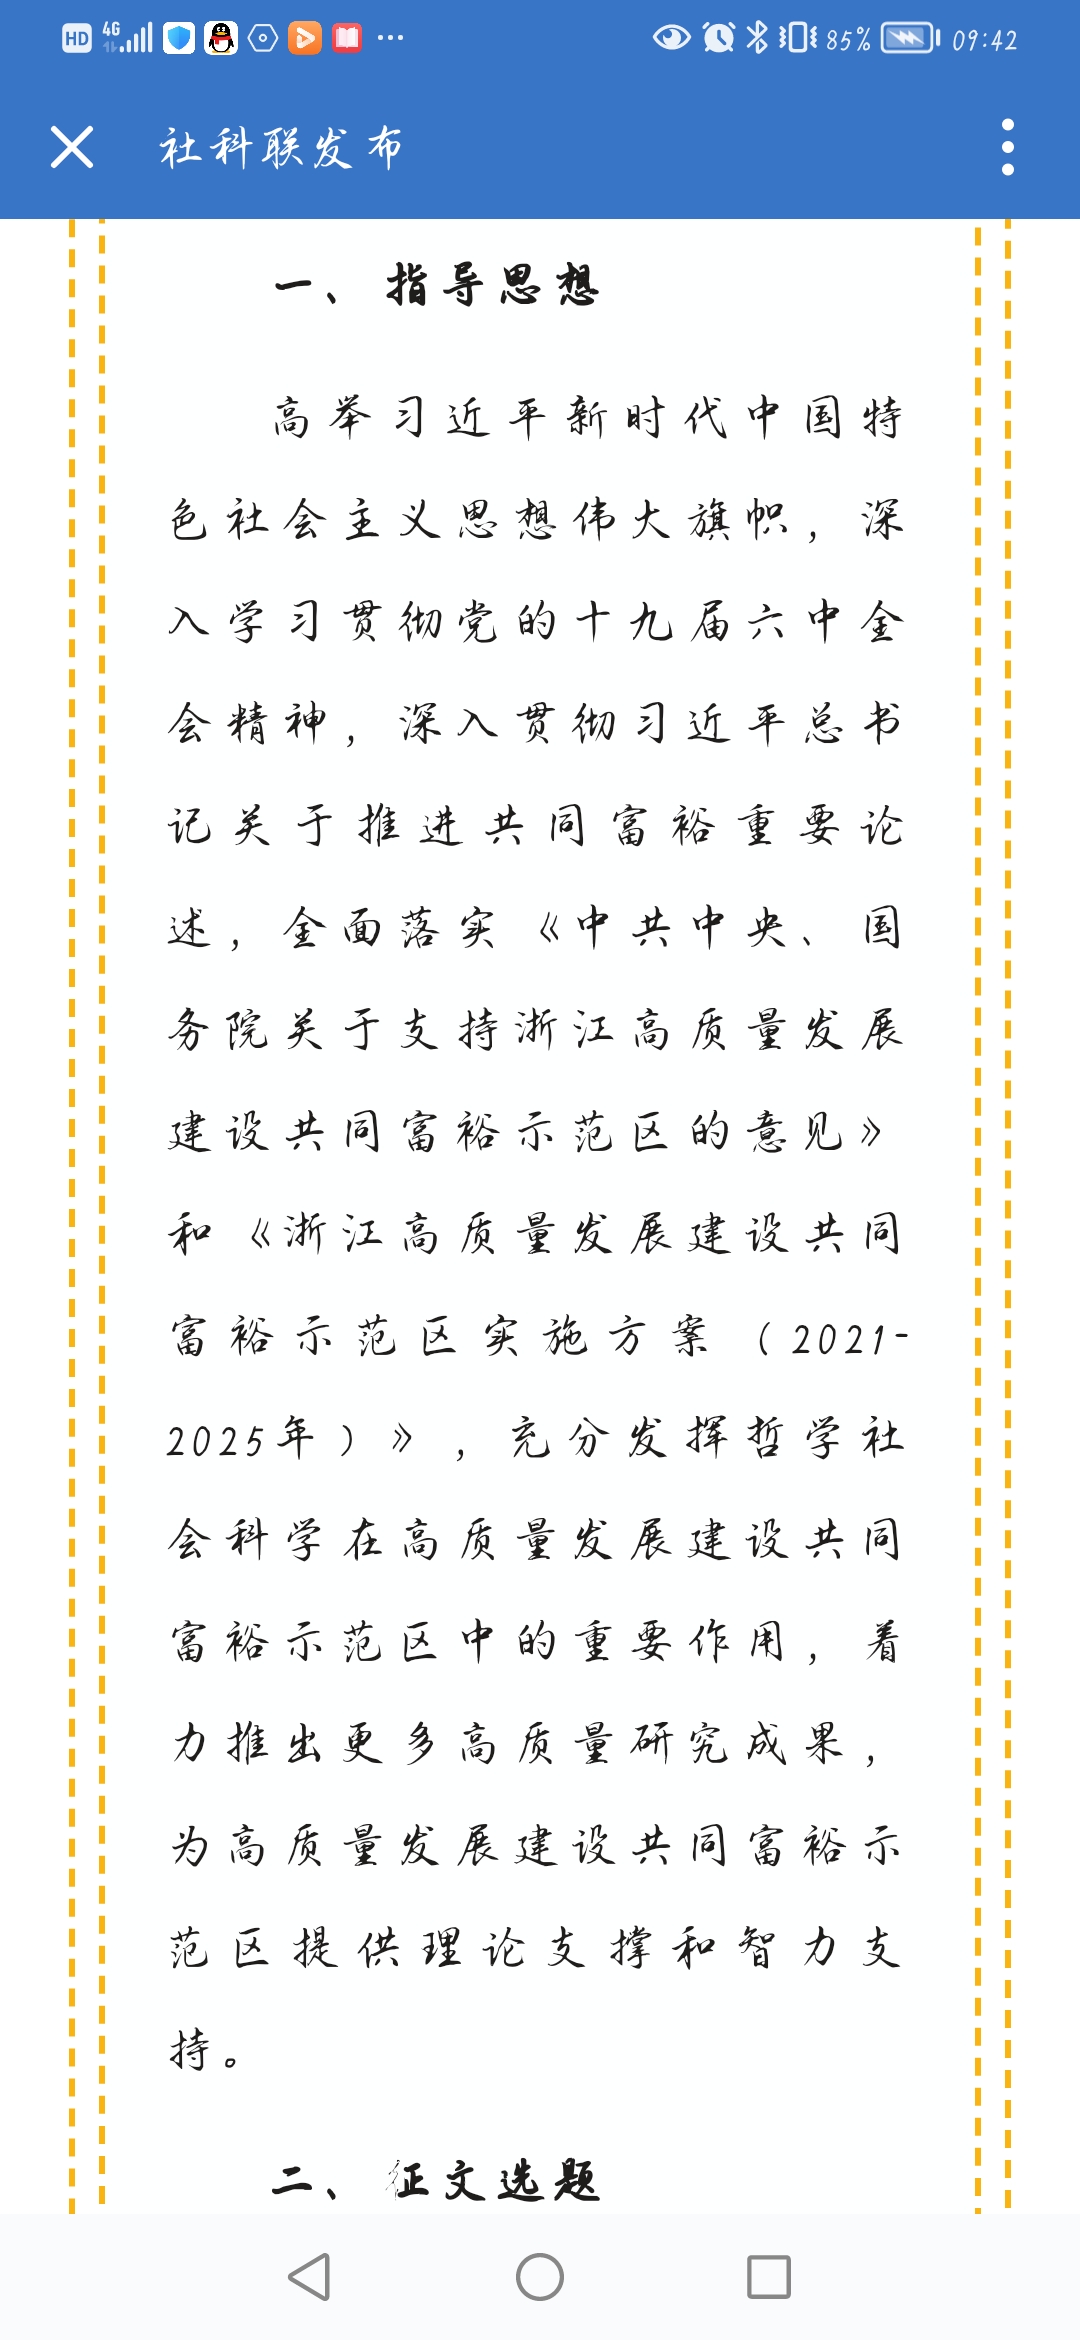 HD 4G 85% 09:42
社科联发布
一、指导思想
高举习近平新时代中国特
色社会主义思想伟大旗帜，深
入学习贯彻党的十九届六中全
会精神，深入贯彻习近平总书
记关于推进共同富裕重要论
述，全面落实《中共中央、国
务院关于支持浙江高质量发展
建设共同富裕示范区的意见》
和《浙江高质量发展建设共同
富裕示范区实施方案（2021-
2025年）》，充分发挥哲学社
会科学在高质量发展建设共同
富裕示范区中的重要作用，着
力推出更多高质量研究成果，
为高质量发展建设共同富裕示
范区提供理论支撑和智力支
持。
二、征文选题